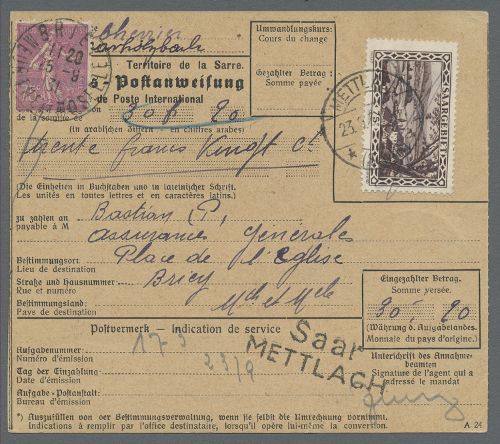 Umwandlungskurs:
Cours du change
Territoire de la Sarre.
Postanweisung
de Poste International
Gezahlter Betrag:
Somme payée
METTLACH
SAARGEBIET
la somme de
30 F 20
(in arabischen Ziffern en chiffres arabes)
trente francs vingt ct
(Die Einheiten in Buchstaben und in lateinischer Schrift.
Les unités en toutes lettres et en caractères latins.)
zu zahlen an
payable à M
Bastian P,
assurances générales
Bestimmungsort:
Lieu de destination
Place de l'Eglise
Straße und Hausnummer
Rue et numéro
Briey
Bestimmungsland:
Pays de destination
Mth et Mele
Eingezahlter Betrag.
Somme versée.
30 20
(Währung d. Aufgabelandes.
Monnaie du pays d'origine.)
Postvermerk – Indication de service
Aufgabenummer:
Numéro d'émission
173
Tag der Einzahlung:
Date d'émission
23/9
Aufgabe-Postanstalt:
Bureau d'émission
Saar
METTLACH
Unterschrift des Annahme-
beamten
Signature de l'agent qui a
adressé le mandat
*) Auszufüllen von der Bestimmungsverwaltung, wenn sie selbst die Umrechnung vornimmt.
Indications à remplir par l'office destinataire, lorsqu'il opère lui-même la conversion.
A 24